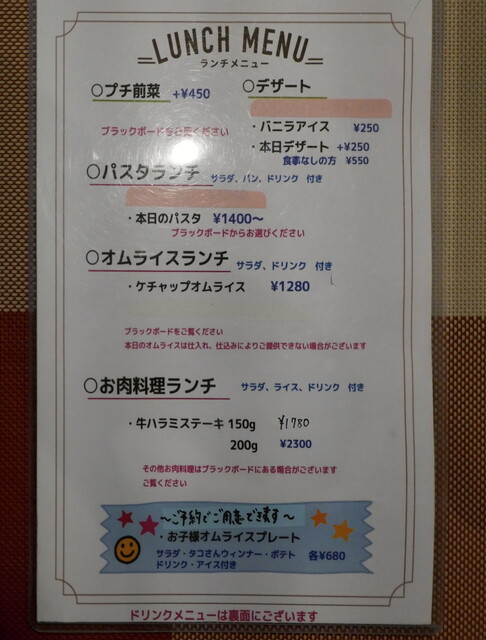 LUNCH MENU
ランチメニュー
○プチ前菜 +¥450
ブラックボードをご覧ください
○デザート
・バニラアイス ¥250
・本日デザート +¥250
食事なしの方 ¥550
○パスタランチ サラダ、パン、ドリンク 付き
・本日のパスタ ¥1400～
ブラックボードからお選びください
○オムライスランチ サラダ、ドリンク 付き
・ケチャップオムライス ¥1280
ブラックボードをご覧ください
本日のオムライスは仕入れ、仕込みによりご提供できない場合がございます
○お肉料理ランチ サラダ、ライス、ドリンク 付き
・牛ハラミステーキ 150g ¥1780
200g ¥2300
その他お肉料理はブラックボードにある場合がございます
ご覧ください
～ご予約でご用意できます～
・お子様オムライスプレート
サラダ・タコさんウィンナー・ポテト 各¥680
ドリンク・アイス付き
ドリンクメニューは裏面にございます